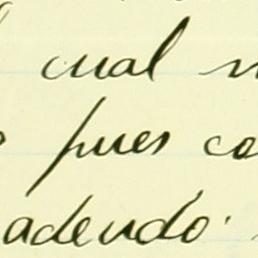 cual
pues co
adendo.